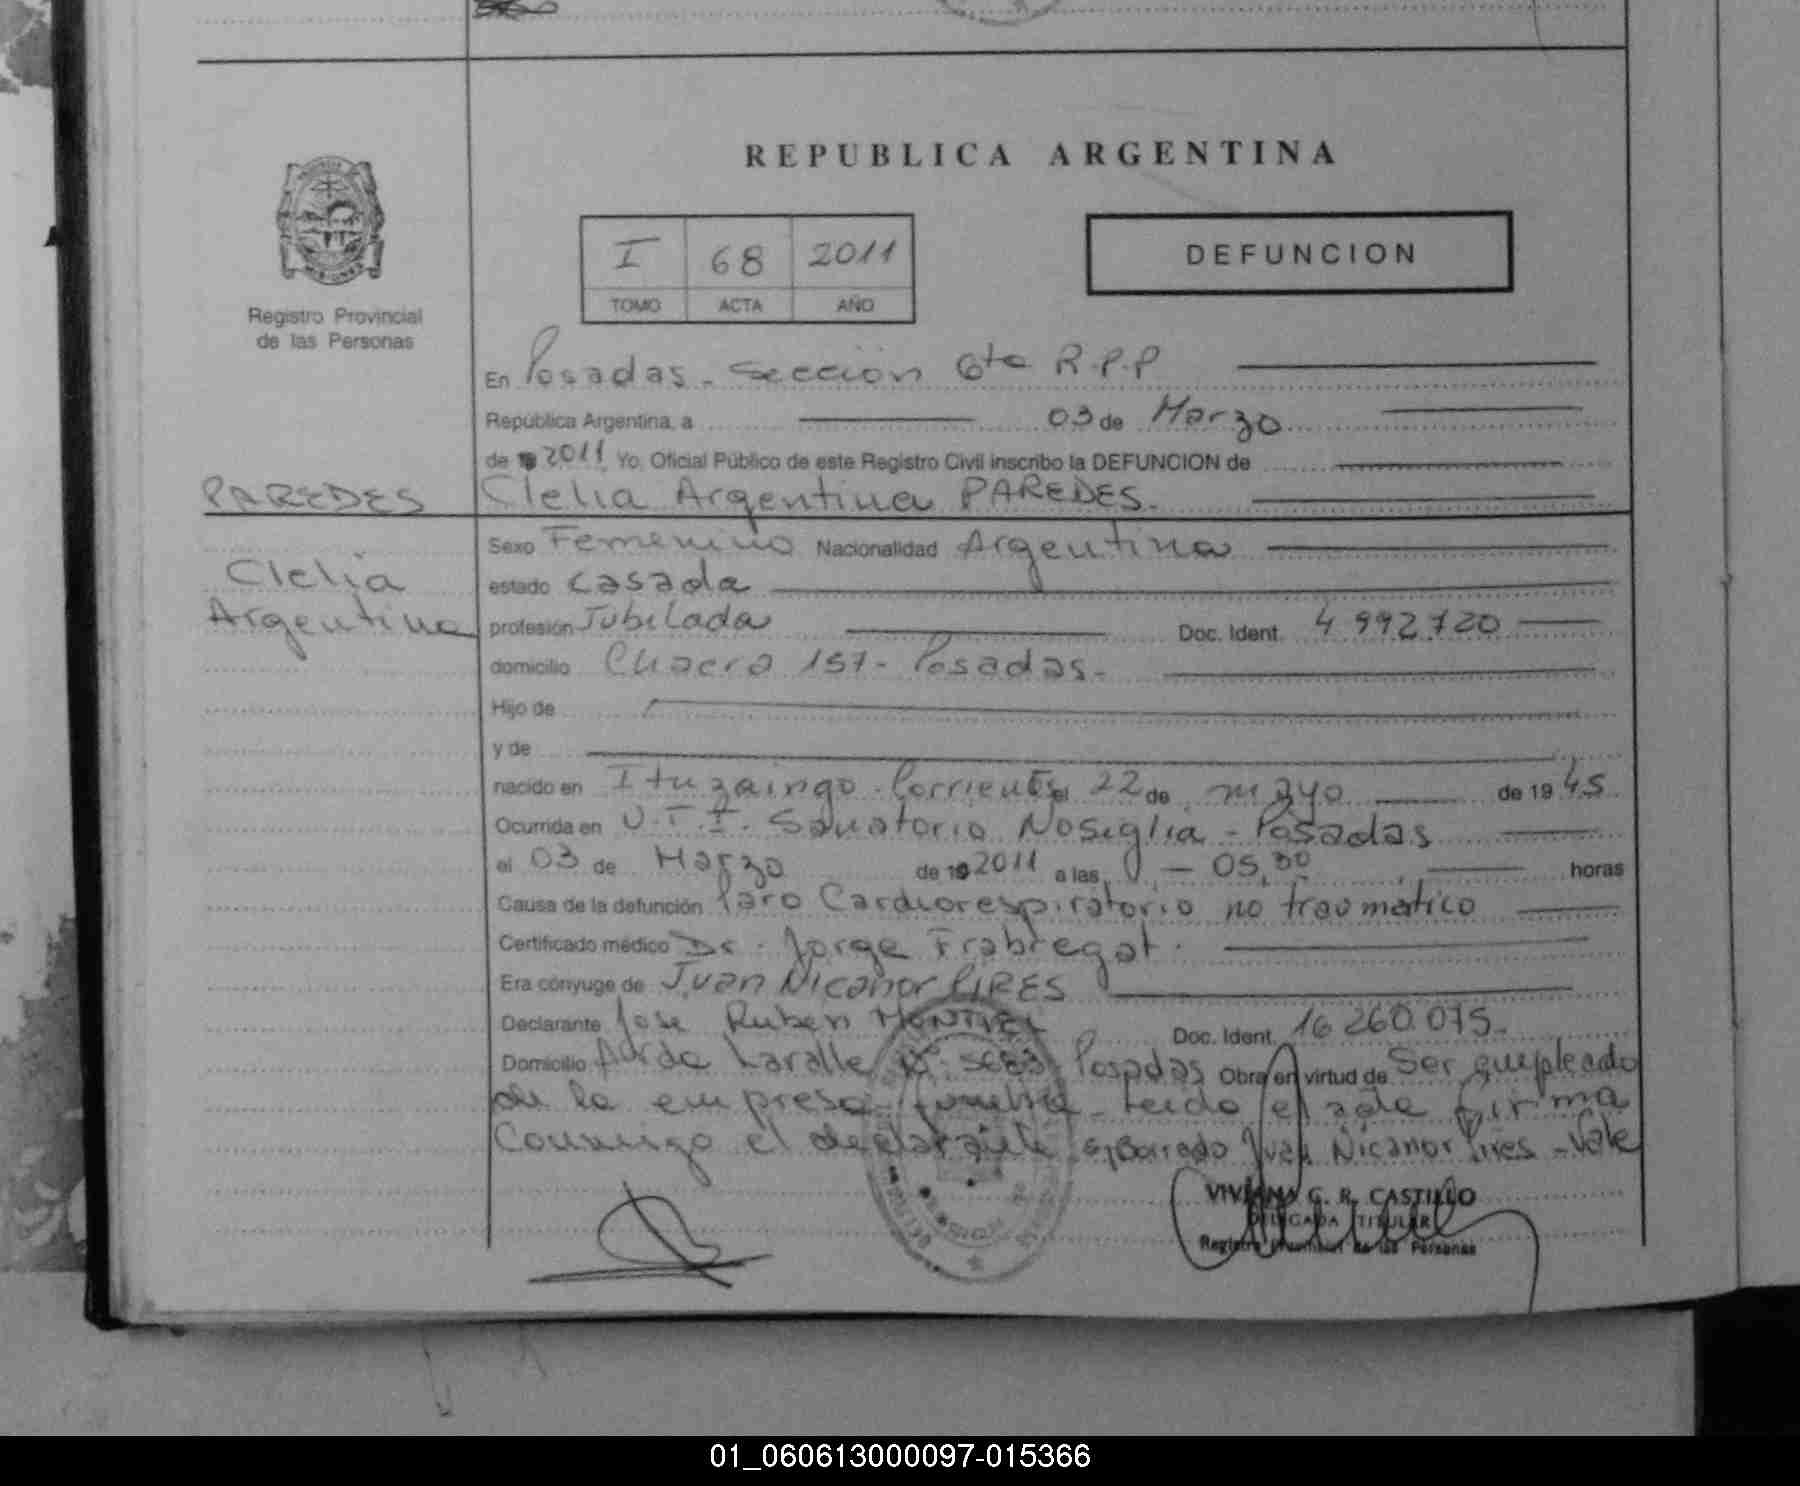 REPUBLICA ARGENTINA
I 68 2011
TOMO ACTA AÑO
DEFUNCION
Registro Provincial
de las Personas
En Posadas - Sección 6ta R.P.P
República Argentina, a 03 de Marzo
de 2011 Yo, Oficial Público de este Registro Civil inscribo la DEFUNCION de
PAREDES
Clelia Argentina PAREDES.
Clelia
Argentina
Sexo Femenino Nacionalidad Argentina
estado casada
profesión Jubilada Doc. Ident. 4 992.720
domicilio Chacra 157 - Posadas -
Hijo de
y de
nacido en Ituzaingo - Corrientes el 22 de mayo de 1945
Ocurrida en U.T.I. Sanatorio Nosiglia - Posadas
el 03 de Marzo de 2011 a las 05,30 horas
Causa de la defunción Paro Cardiorespiratorio no traumático
Certificado médico Dr. Jorge Frabregat.
Era cónyuge de Juan Nicanor PIRES
Declarante Jose Ruben MONTIEL Doc. Ident. 16 260.075.
Domicilio Avda Laralle Nº Posadas Obra en virtud de Ser empleado
de la empresa funebre - Leido el acta firma
Conmigo el declarante E/Borrado Juan Nicanor Pires - Vale
VIVIANA G. R. CASTILLO
DELEGADA TITULAR
Registro Provincial de las Personas
01_060613000097-015366